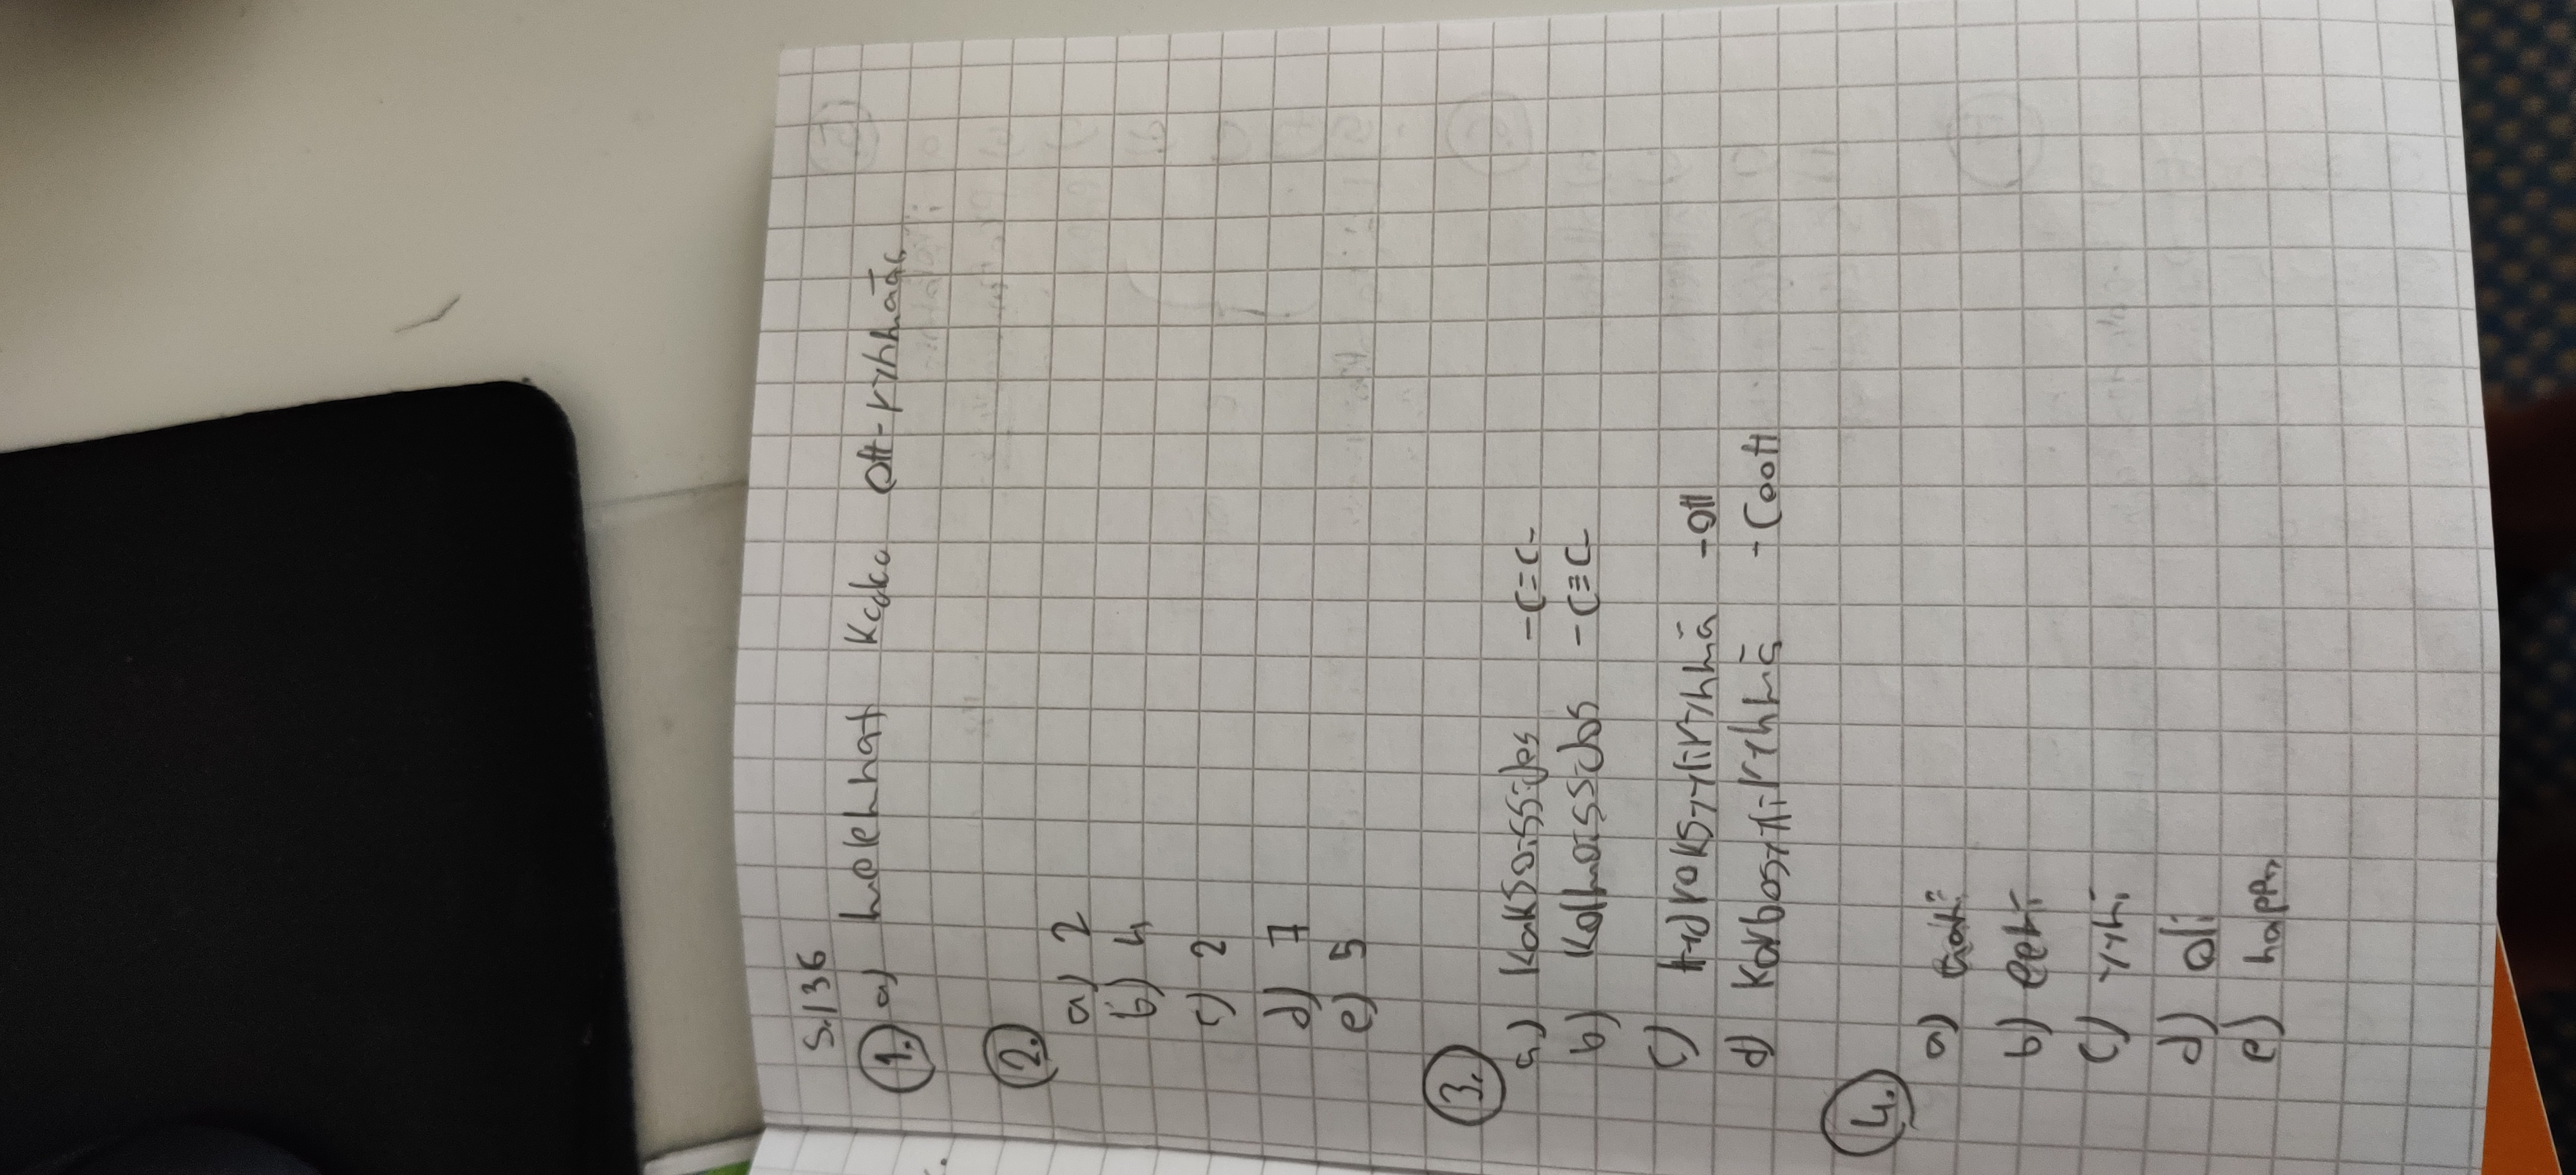 S.136
1. a) molemmat Kaksi OH-ryhmää
2.
a) 2
b) 4
c) 2
d) 7
e) 5
3.
a) Kaksoissidos -C=C-
b) Kolmoissidos -C≡C-
c) Hydroksyyliryhmä -OH
d) Karboksyyliryhmä -COOH
4.
a) aani
b) eeni
c) yyni
d) oli
e) happo